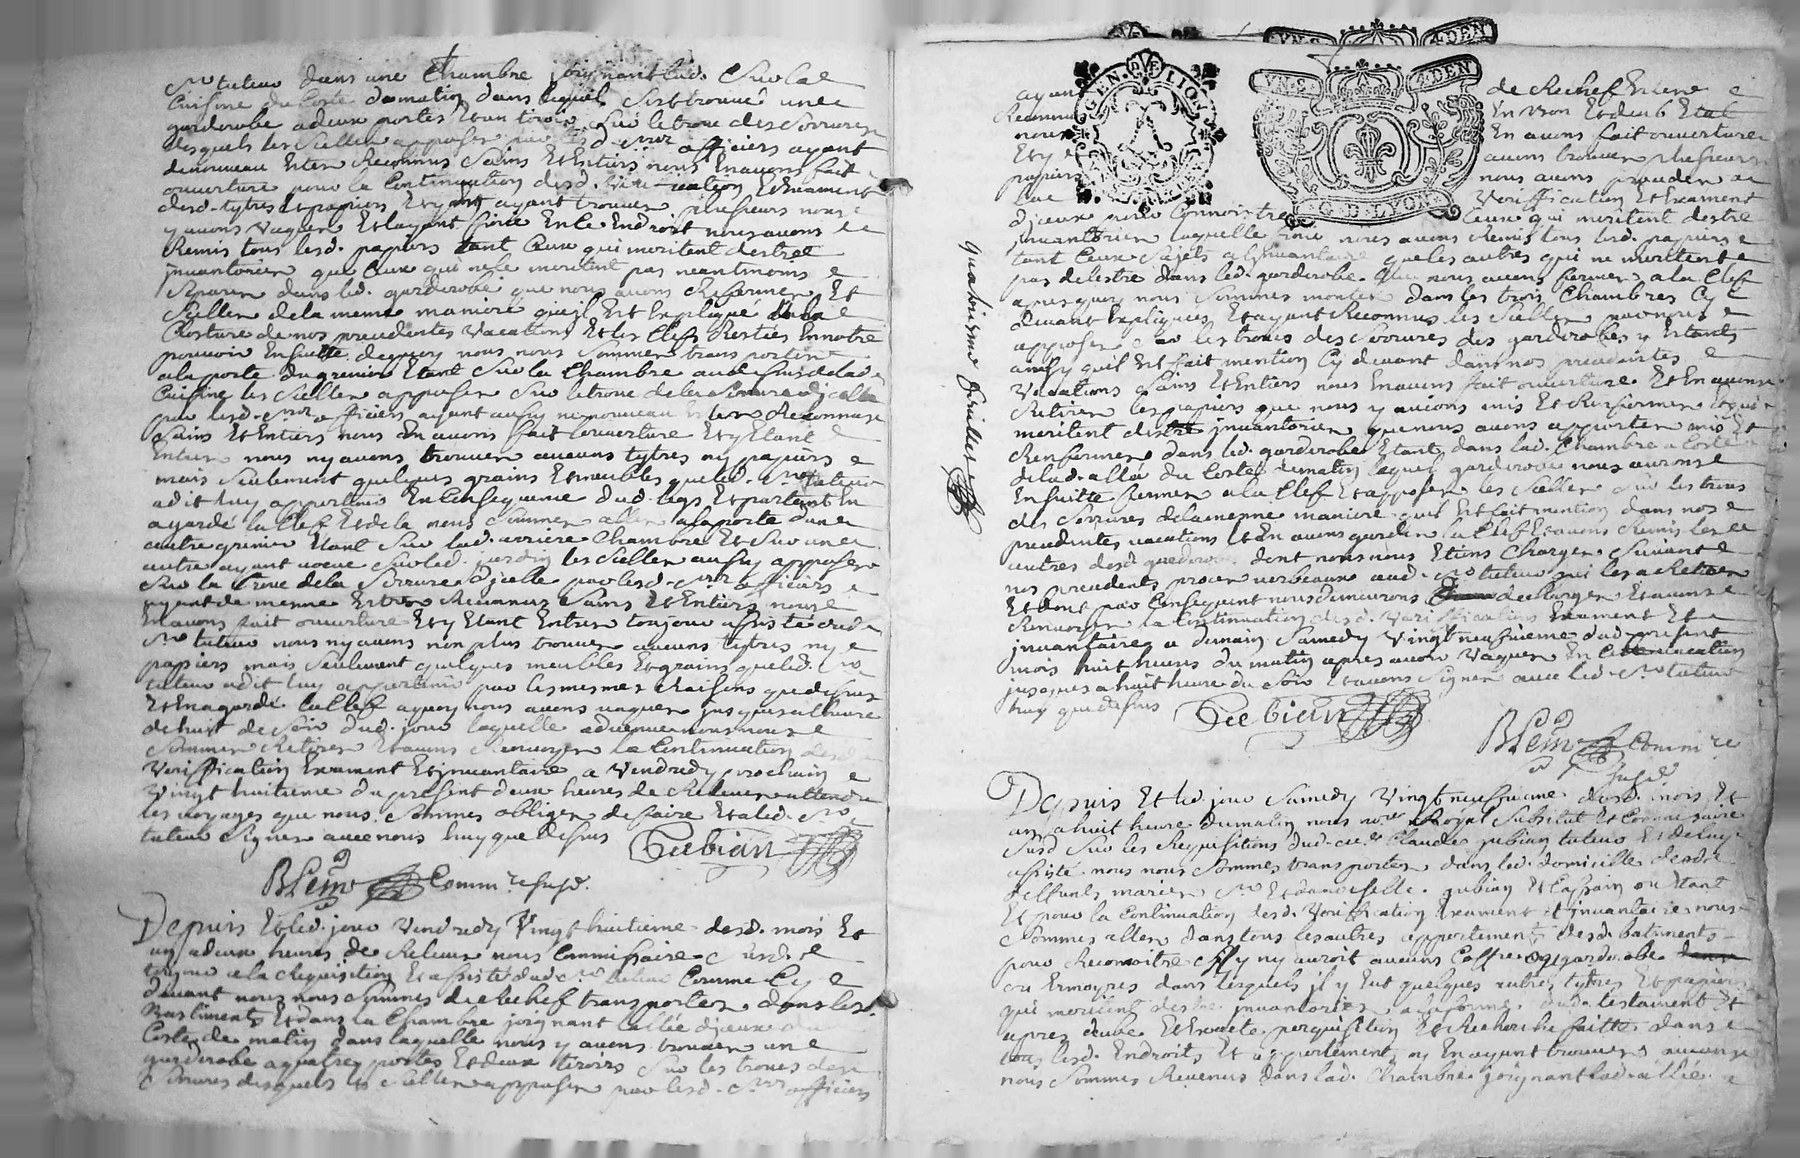 Sr. tuteur dans une Chambre joignant lad. Sur lae
Cuisine du Costé de matin dans laquelle s'est trouvé une
garderobe a deux portes et un tiroir sur le trou des Serrures
desquels les Sceller apposer par lesd. Srs. officiers ayant
denouveau Ester Reconnus Sains Et Entiers nous En avons fait
ouverture pour la Continuation desd. Veriffication Et Exament
desd. tytres Et papiers Et y en ayant trouver plusieurs nous
y avons vaquer Et layant finie En le Endroit nous avons
Remis tous lesd. papiers tant Ceux qui meritent destre
jnvantorier que Ceux qui ne le meritent pas neantmoins e
Separer dans lad. garderobe que nous avons Refermer Et
Sceller de la meme maniere qu'il Est Expliqué dans la
Closture de nos precedentes Vacations Et les Clefs Restées En notre
pouvoir Ensuitte dequoy nous nous Sommes transportér
a la porte du grenier Etant Sur la Chambre au dessus de lad.
Cuisine les Sceller apposer Sur le trou de la Serrure dicelle
par lesd. Srs. officiers ayant aussy denouveau Ester Reconnus
Sains Et Entiers nous En avons fait louverture Et y Etant e
Entrer nous n'y avons trouver aucuns tytres ny papiers e
mais Seulement quelques grains Et meubles que led. Sr. tuteur
a dit luy appartenir En Consequence dud. legs Et partant En
a gardé la Clef Et de la nous Sommes aller a la porte d'une
autre grenier Etant Sur lad. arriere Chambre Et Sur une
autre ayant veue Sur led. jardin les Sceller aussy apposer
Sur la troue de la Serrure d'jcelle par lesd. Srs. officiers e
ayant de meme Ester Reconnus Sains Et Entiers nous e
En avons fait ouverture Et y Etant Entrer toujour assisté dud.
Sr. tuteur nous n'y avons non plus trouver aucuns tytres ny e
papiers mais Seulement quelques meubles Et grains que led. Sr.
tuteur a dit luy appartenir par les mesmes Raisons que dessus
Et En a gardé la Clef a quoy nous avons vaquer jusques a lheure
de huit de Soir dud. jour laquelle advenue nous nous e
Sommes Retirer Et avons Renvoyer la Continuation desd.
Veriffication Exament Et jnvantaire a Vendredy prochain e
Vingt huitieme du present deux heures de Relevée attendu
les voyages que nous Sommes obliger de faire Et a led. Sr.
tuteur Signer avec nous luy que dessus Gubian
BLein Commre Susd.
Depuis Et led. jour Vendredy Vingt huitieme desd. mois Et
an a deux heures de Relevée nous Commissaire Susd. e
toujour a la Requisition Et assisté dud. Sr. tuteur Comme Cy e
devant nous nous Sommes de Rechef transporter dans les
Bastiments Et dans la Chambre joignant l'allée d'jceux du
Costé de matin dans laquelle nous y avons trouver une
garderobe a quatre portes Et deux tiroirs Sur les troues des
Serrures desquels les Sceller apposer par lesd. Srs. officiers
GEN. DE LION
YN. S. 4. DEN
G. D. LYON
ayant
de Rechef Ester e
Reconnu
En bon Et deub Etat
nous
En avons fait ouverture
Et y
avons trouver plusieurs
papiers
nous avons proceder a
lae
Veriffication Et Exament
d'jceux pour Connoistre
Ceux qui meritent destre
jnvantorier laquelle finie nous avons Remis tous lesd. papiers e
tant Ceux Sujets a l'jnvantaire que les autres qui ne meritent e
pas de lestre dans lad. garderobe. Que nous avons fermer a la Clef
apres quoy nous Sommes monter dans les trois Chambres Cy e
devant Expliquées Et ayant Reconnus les Sceller par nous e
apposer Sur les troues des Serrures des garderobes y Estants
ainsy qu'il Est fait mention Cy devant dans nos precedentes e
Vacations Sains Et Entiers nous En avons fait ouverture Et En avons
Retirer les papiers que nous y avions mis Et Renfermer Et qui
meritent destre jnvantorier que nous avons apporter mis Et
Renfermer dans lad. garderobe Etant dans lad. Chambre a Costé
de lad. allée du Costé de matin laquelle garderobe nous aurons
Ensuitte Fermer a la Clef Et apposer les Sceller Sur les troues
des Serrures de la meme maniere qu'il Est fait mention dans nos e
precedentes vacations Et En avons garder la Clef Et avons Remis les
autres desd. garderobes dont nous nous Etions Charger Suivant e
nos precedents procer verbeaux aud. Sr. tuteur qui les a Retirer
Et dont par Consequent nous demeurons decharger Et avons e
Renvoyer la Continuation desd. Veriffication Exament Et e
jnvantaires a demain Samedy Vingt neufvieme dud. present
mois huit heures du matin apres avoir Vaquer En Cette vacation
jusques a huit heure du Soir Et avons Signer avec led. Sr. tuteur
luy que dessus Gubian
BLein Commre
Susd.
quatrieme feuillet
Depuis Et led. jour Samedy Vingt neufvieme desd. mois Et
an a huit heure du matin nous nore. Royal Substitut Et Commissaire
Susd. Sur les Requisitions dud. Claude gubian tuteur Et de luy
assisté nous nous Sommes transporter dans led. domicille desd.
deffunts mariér Sr. Et damoiselle gubian Et ou Etant
Et pour la Continuation desd. Veriffication Exament Et jnvantaire nous
Sommes aller dans tous les autres appartements desd. batiments
pour Reconnoitre S'il y n'y auroit aucuns Coffre garderobe
ou Ermoyres dans lesquels jl y Eut quelques autres tytres Et papiers
qui meritent destre jnvantorier a la forme dud. testament Et
apres deube Et Exacte perquisition Et Recherche faitte dans e
tous lesd. Endroits Et appartements n'y En ayant trouver aucuns
nous Sommes Revenus dans lad. Chambre joignant lad. allée e